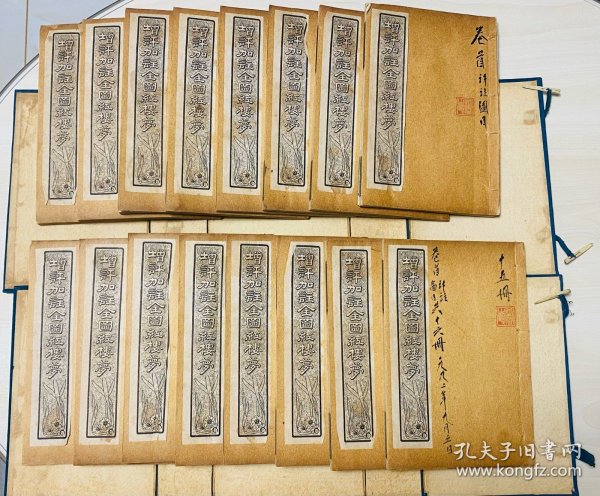 增評加註全圖紅樓夢
增評加註全圖紅樓夢
增評加註全圖紅樓夢
增評加註全圖紅樓夢
增評加註全圖紅樓夢
增評加註全圖紅樓夢
增評加註全圖紅樓夢
增評加註全圖紅樓夢
卷首
增評加註全圖紅樓夢
增評加註全圖紅樓夢
增評加註全圖紅樓夢
增評加註全圖紅樓夢
增評加註全圖紅樓夢
增評加註全圖紅樓夢
增評加註全圖紅樓夢
增評加註全圖紅樓夢
卷首
共十六册
十五冊
孔夫子旧书网
www.kongfz.com